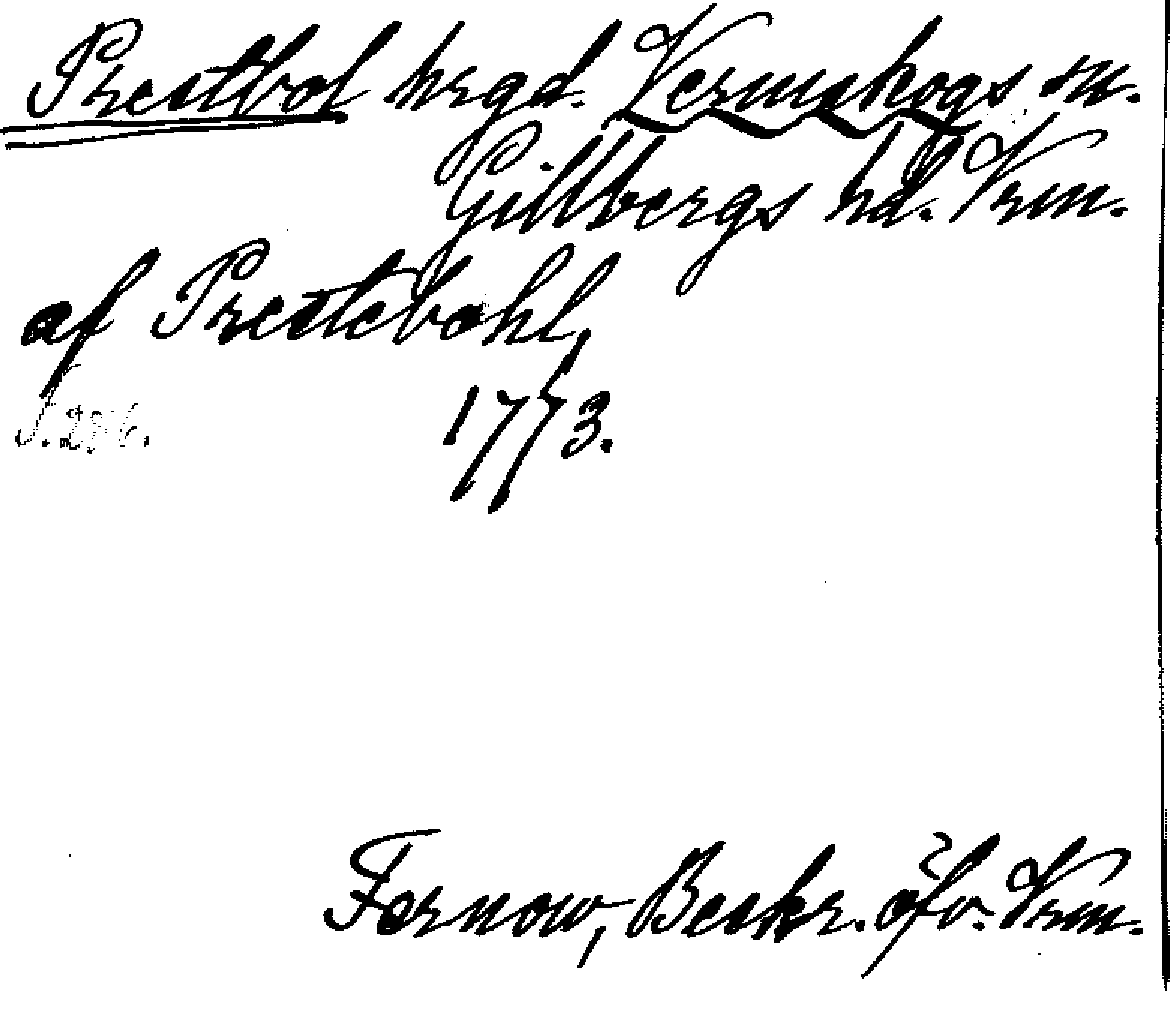 Prestbol hrgd. Vermskogs sn.
Gillbergs hd. Vrm.
af Prestebohl,
1773.
S. 286.
Fernow, Beskr. öfv. Vrm.